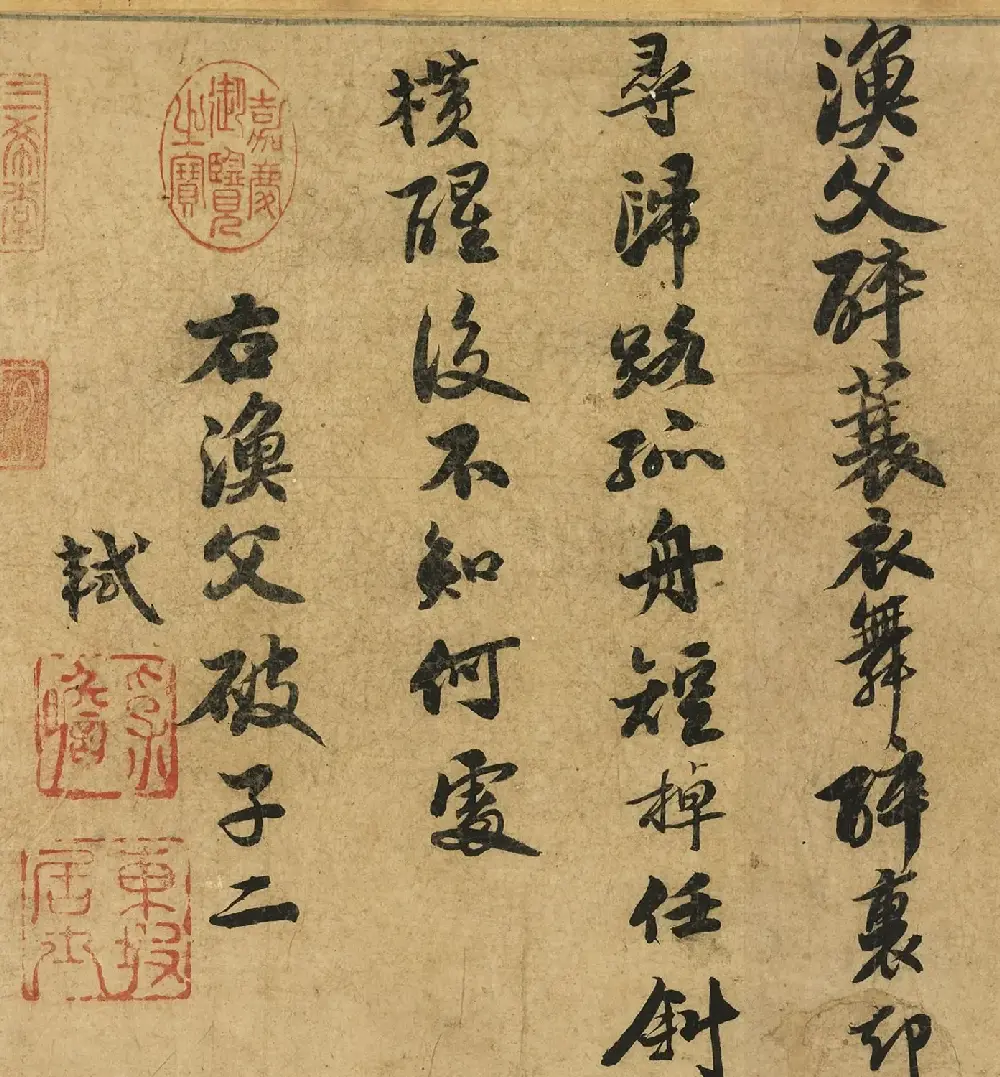 漁父醉蓑衣舞醉裏却
尋歸路孤舟短棹任斜
橫醒後不知何處
右漁父破子二
軾
嘉慶御覽之寶
三希堂
子瞻
東坡居士